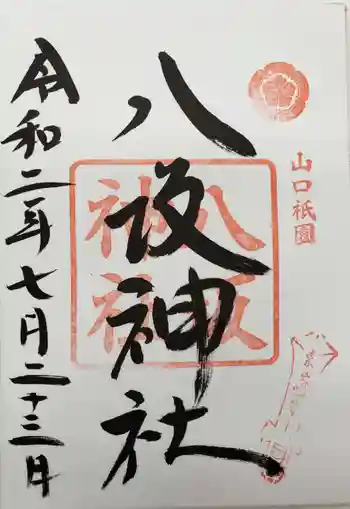 山口祇園
八坂神社
八坂
神社
令和二年七月二十三日